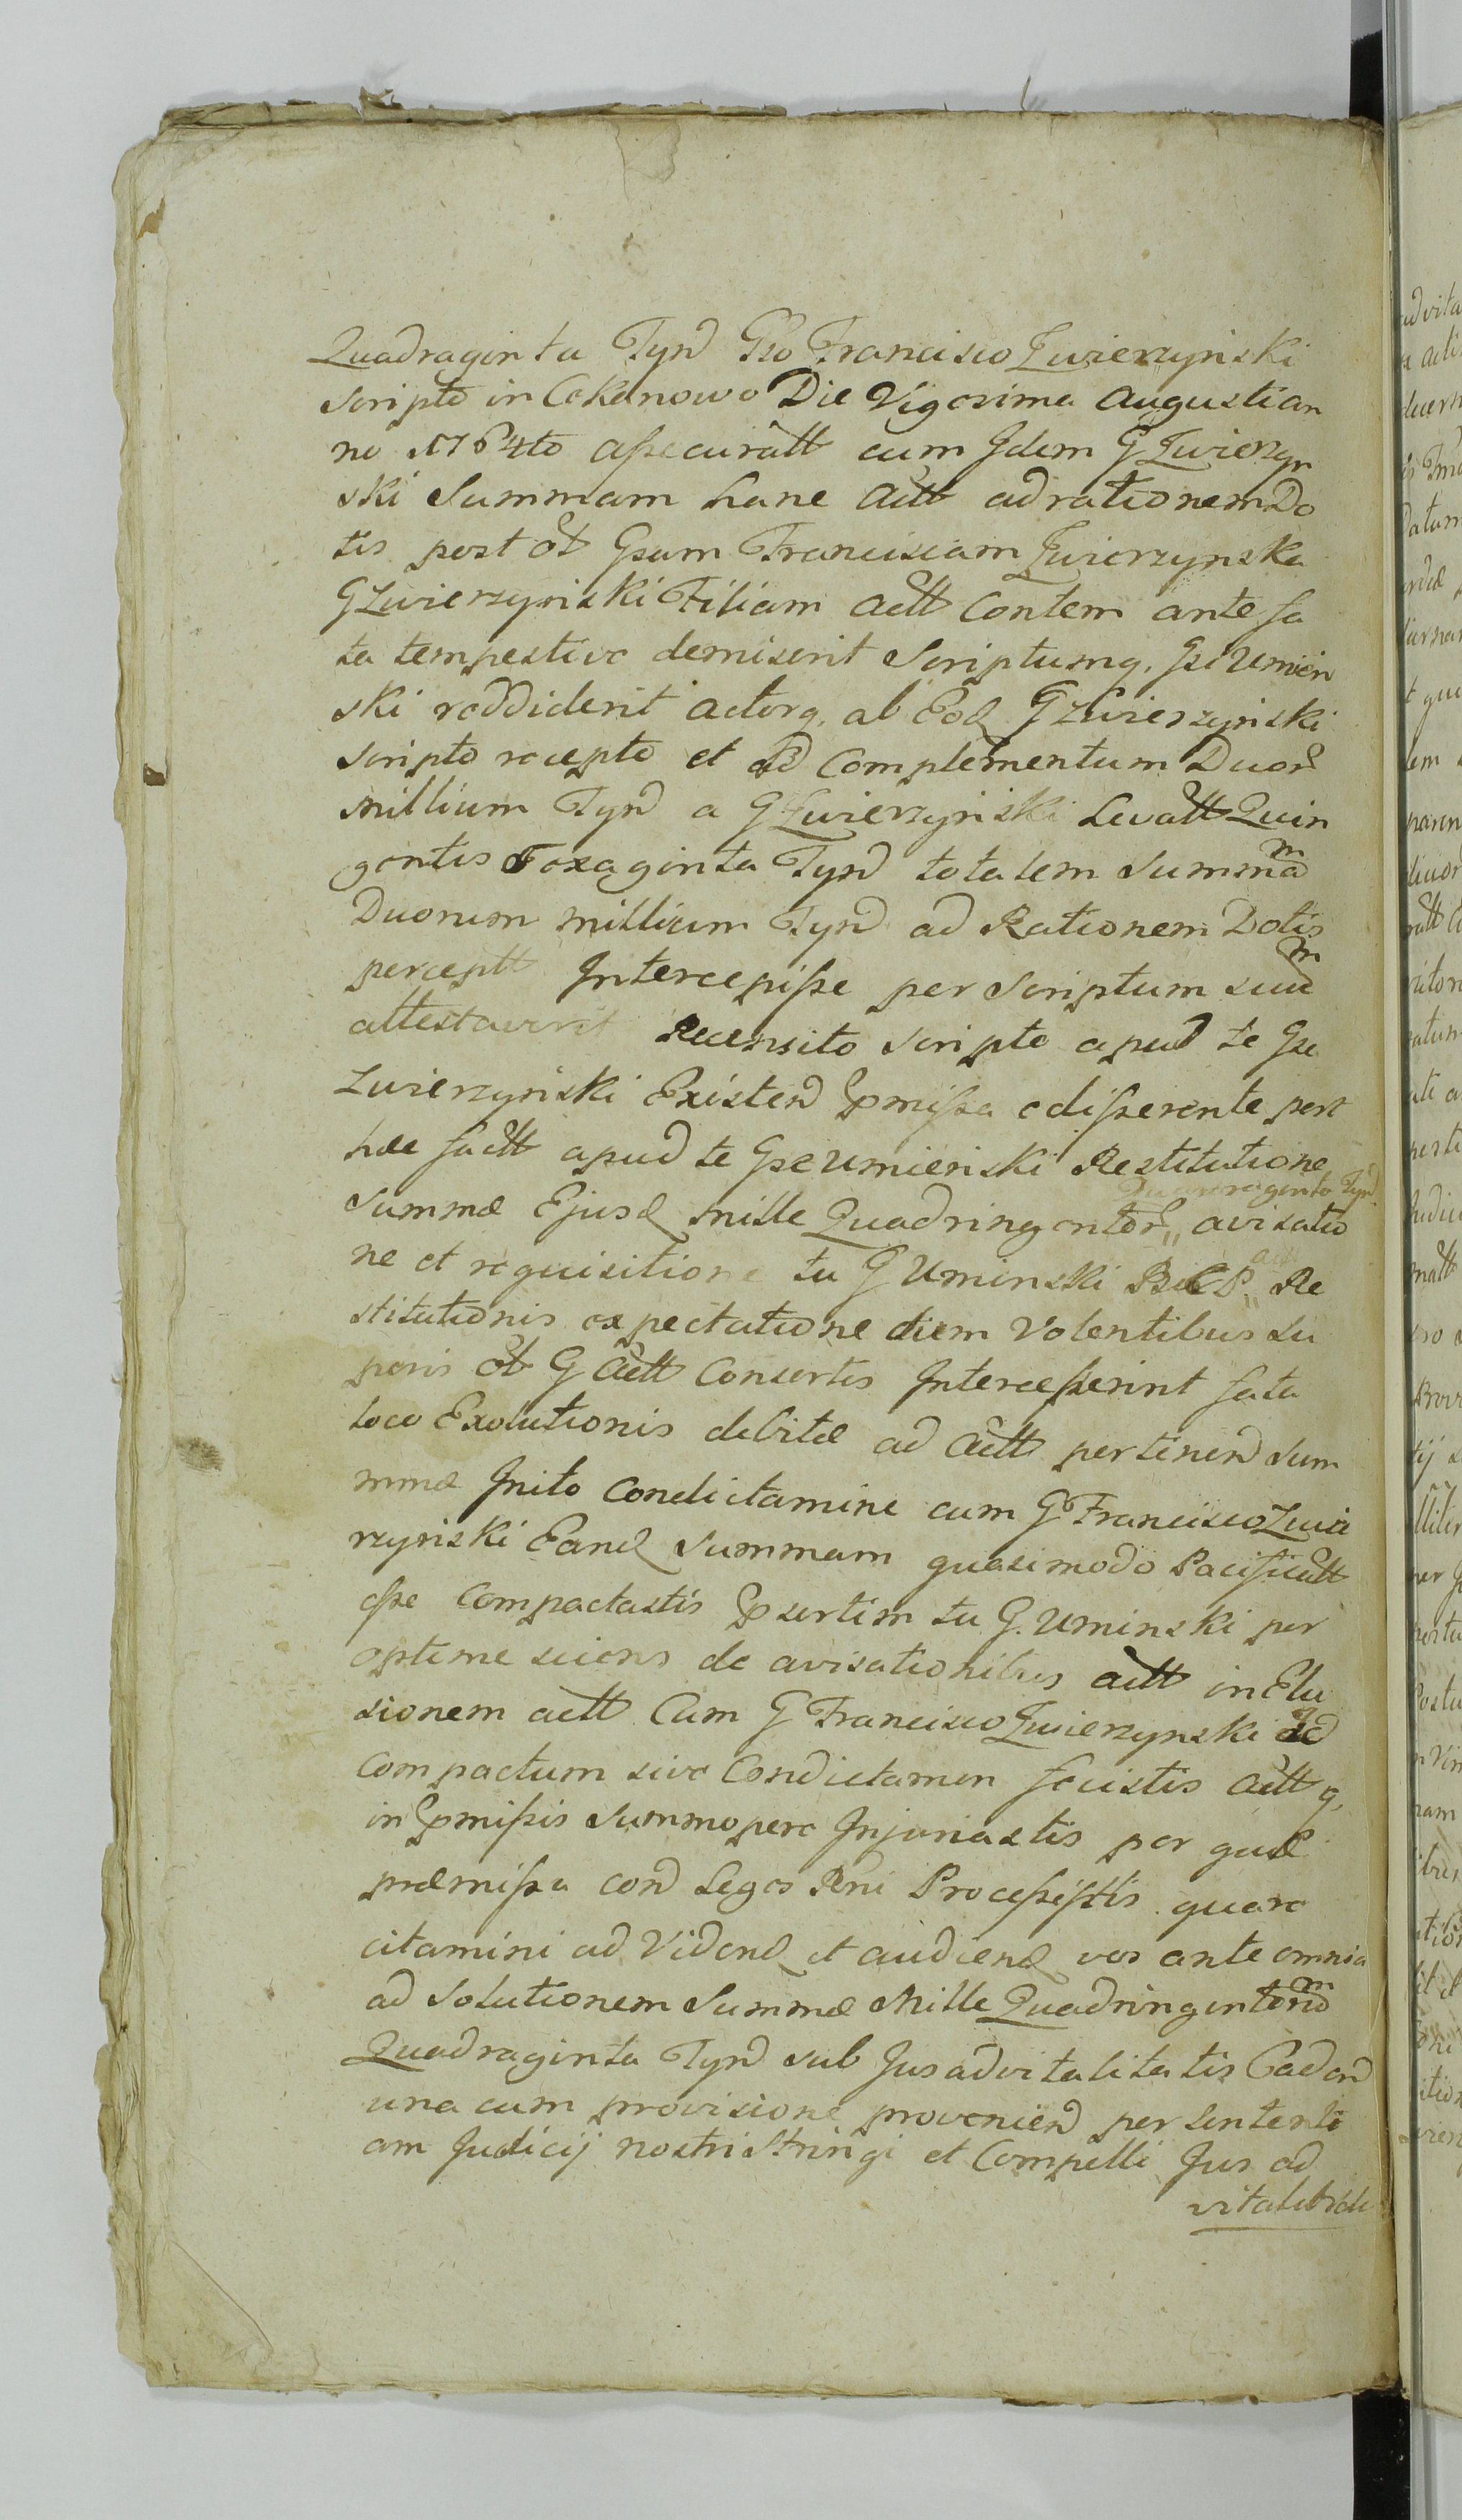 Quadraginta Tynd Gso Francisco Zwierzynski
scripto in Cekanowo Die Vigesima Augusti an
no 1764to assecuratt cum Idem G Zwierzyn
ski Summam hanc Actt ad rationem Do
tis post ot Gsam Franciscam Zwierzynska
G Zwierzynski Filiam Actt Contem ante fa
ta tempestive demiserit Scriptumq, Gse Umien
ski reddiderit actorq, ab Eod G Zwierzynski
Scripto recepto et ad Complementum Duor
millium Tynd a G Zwierzynski Levatt Quin
gentis Sexaginta Tynd totalem Summam
Duorum millium Tynd ad Rationem Dotis
perceptt Intercepisse per Scriptum suum
attestaverit Recensito Scripto apud te Gse
Zwierzynski Existend pmissa edisserente post
hac factt apud te Gse Umienski Restitutione
Quadraginta Tynd
Summæ Ejusd mille Quadringentor,, avisatio
ne et requisitione tu G Uminski Re
stitutionis expectatione diem Volentibus su
peris ot G Actt Consortis Intercesserint fata
loco Exolutionis debitæ ad Actt pertinend Sum
mmæ Inito Condictamine cum G Francisco Zwie
rzynski Eand Summam quasimodo Pacificatt
esse Compactastis psertim tu G. Uminski per
optime sciens de avisationibus actt in Elu
sionem actt Cum G Francisco Zwierzynski id
Compactum sive Condictamen fecistis Actt q,
in pmissis Summopere Injuriastis per quæ
præmissa cond Leges Rni Processistis quare
citamini ad Vidend et audiend vos ante omnia
ad Solutionem Summæ Mille Quadringentorum
Quadraginta Tynd sub Jus advitalitatis Cadend
una cum provisione proveniend per Sententi
am Judicij nostri Stringi et Compelli Jus ad